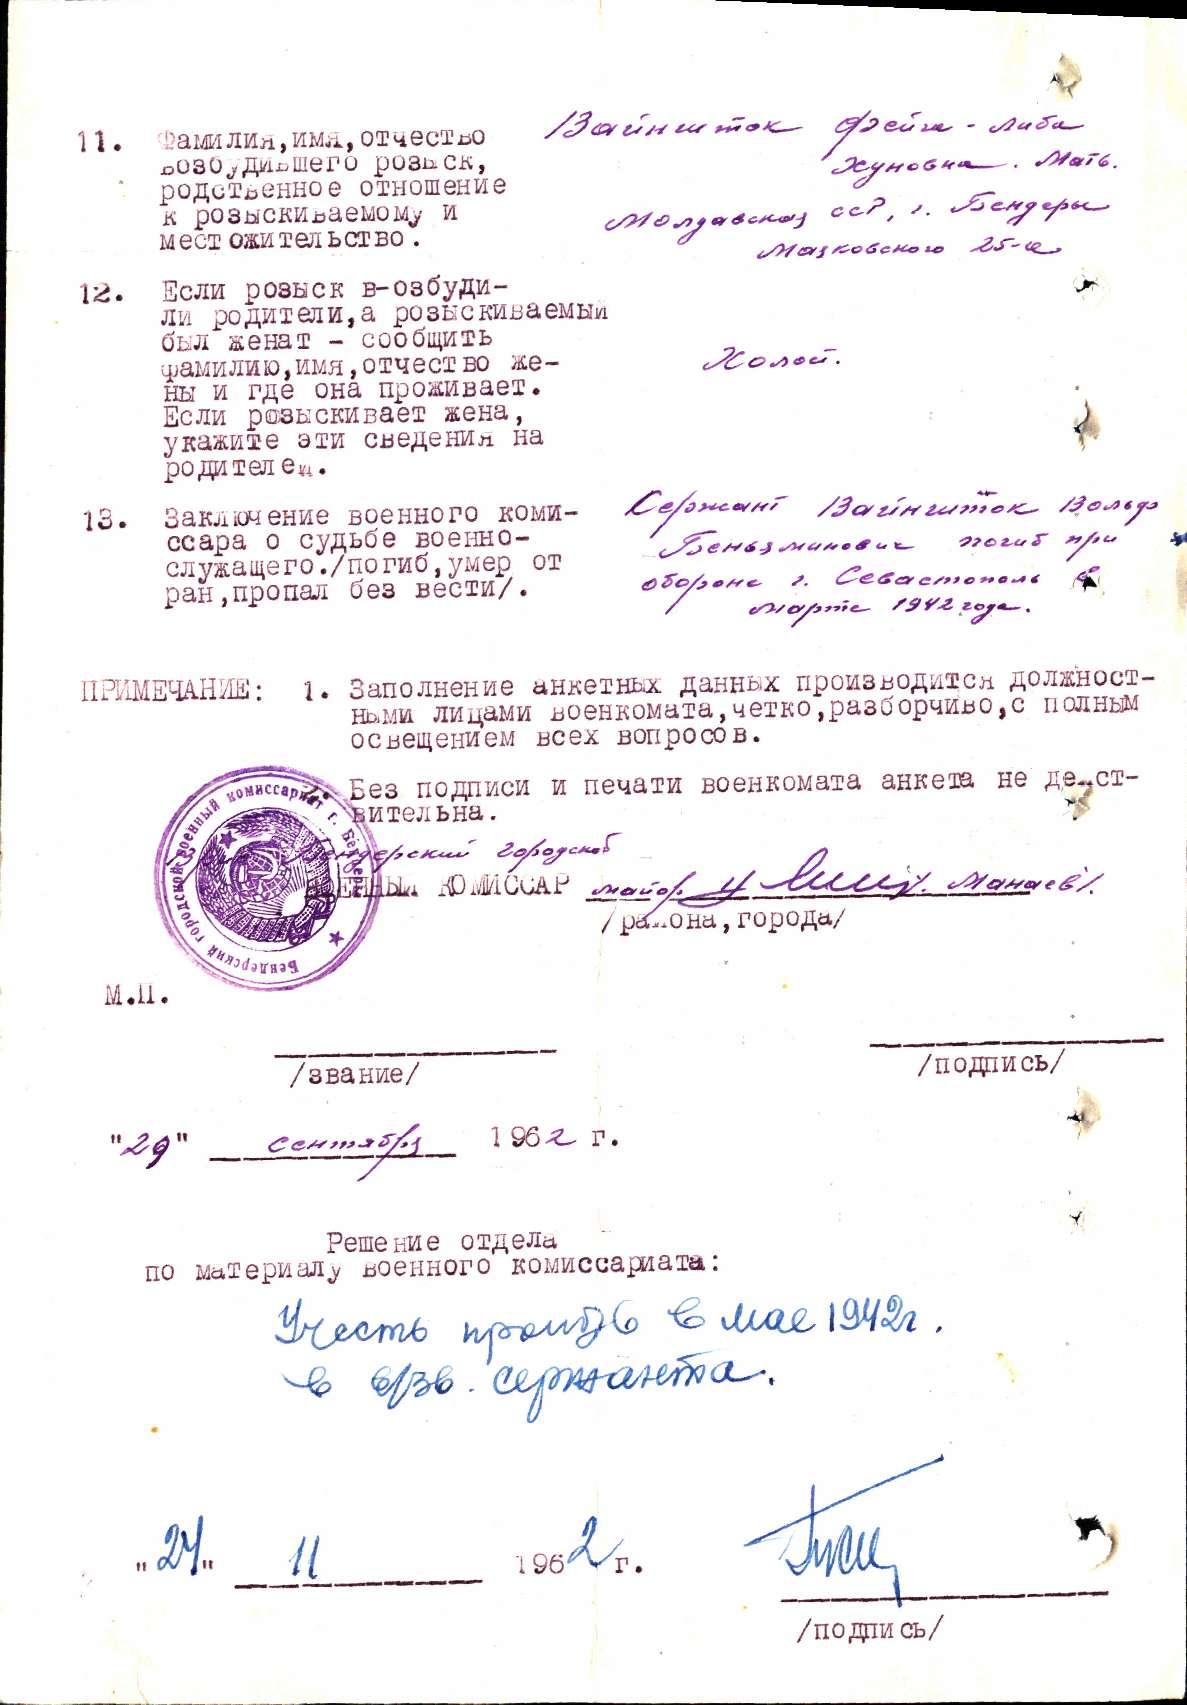 11. Фамилия,имя,отчество
возбудившего розыск,
родственное отношение
к розыскиваемому и
местожительство.
Вайншток Фейга - Либа
Хуновна. Мать.
Молдавская ССР, г. Бендеры
Маяковского 25-а
12. Если розыск в-озбуди-
ли родители,а розыскиваемый
был женат - сообщить
фамилию,имя,отчество же-
ны и где она проживает.
Если розыскивает жена,
укажите эти сведения на
родителей.
Холост.
13. Заключение военного коми-
ссара о судьбе военно-
служащего./погиб,умер от
ран,пропал без вести/.
Сержант Вайншток Вольф
Беньяминович погиб при
обороне г. Севастополь в
марте 1942 года.
ПРИМЕЧАНИЕ: 1. Заполнение анкетных данных производится должност-
ными лицами военкомата,четко,разборчиво,с полным
освещением всех вопросов.
2. Без подписи и печати военкомата анкета не действ-
вительна.
Бендерский городской военный комиссариат г. Бендеры
Бендерский городской
ВОЕННЫЙ КОМИССАР майор Манаев/.
/района,города/
М.П.
/звание/
/подпись/
"29" сентября 1962 г.
Решение отдела
по материалу военного комиссариата:
Учесть в мае 1942г.
в в/зв. сержанта.
"24" 11 1962 г.
/подпись/